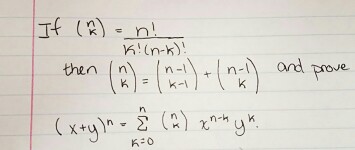 If (n k) = n! / k!(n-k)!
then (n k) = (n-1 k-1) + (n-1 k) and prove
(x+y)ⁿ = Σ_{k=0}^{n} (n k) xⁿ⁻ᵏ yᵏ.